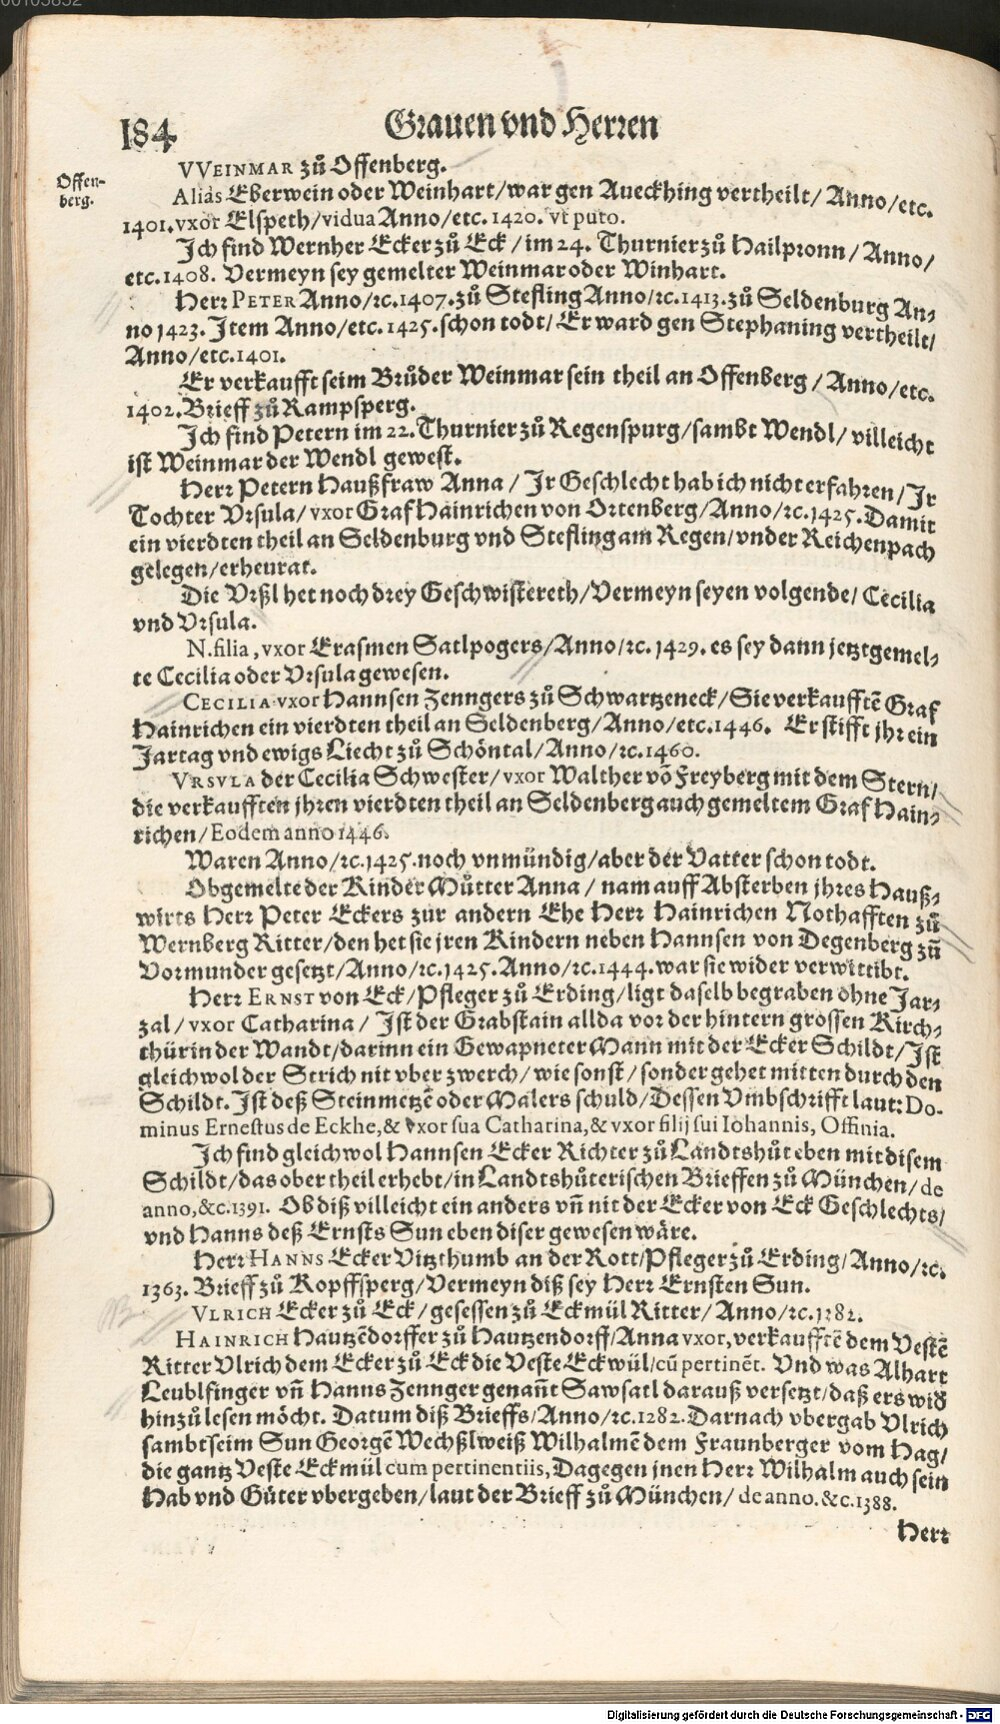 00103832
184 Grauen vnd Herren
Offen-
berg.
VVEINMAR zů Offenberg.
Alias Eberwein oder Weinhart/war gen Aueckhing vertheilt/ Anno/etc.
1401. vxor Elspeth/vidua Anno/etc. 1420. vt puto.
Ich find Wernher Ecker zů Eck / im 24. Thurnier zů Hailpronn / Anno/
etc. 1408. Vermeyn sey gemelter Weinmar oder Winhart.
Herr PETER Anno/ꝛc. 1407. zů Stefling Anno/ꝛc. 1413. zů Seldenburg An-
no 1423. Item Anno/etc. 1425. schon todt/ Er ward gen Stephaning vertheilt/
Anno/etc. 1401.
Er verkaufft seim Brůder Weinmar sein theil an Offenberg / Anno/etc.
1402. Brieff zů Rampsperg.
Ich find Petern im 22. Thurnier zů Regenspurg/sambt Wendl/ villeicht
ist Weinmar der Wendl gewest.
Herr Petern Haußfraw Anna / Ir Geschlecht hab ich nicht erfahren/ Ir
Tochter Vrsula/ vxor Graf Hainrichen von Ortenberg/Anno/ꝛc. 1425. Damit
ein vierdten theil an Seldenburg vnd Stefling am Regen/vnder Reichenpach
gelegen/erheurat.
Die Vrßl het noch drey Geschwistereth/Vermeyn seyen volgende/ Cecilia
vnd Vrsula.
N. filia, vxor Erasmen Satlpogers/Anno/ꝛc. 1429. es sey dann jetztgemel-
te Cecilia oder Vrsula gewesen.
CECILIA vxor Hannsen Zenngers zů Schwartzeneck/Sie verkaufftē Graf
Hainrichen ein vierdten theil an Seldenberg/Anno/etc. 1446. Er stifft jhr ein
Jartag vnd ewigs Liecht zů Schöntal/Anno/ꝛc. 1460.
VRSVLA der Cecilia Schwester/ vxor Walther võ Freyberg mit dem Stern/
die verkaufften jhren vierdten theil an Seldenberg auch gemeltem Graf Hain-
richen/Eodem anno 1446.
Waren Anno/ꝛc. 1425. noch vnmündig/aber der Vatter schon todt.
Obgemelte der Kinder Můtter Anna / nam auff Absterben jhres Hauß-
wirts Herr Peter Eckers zur andern Ehe Herr Hainrichen Nothafften zů
Wernberg Ritter/den het sie jren Kindern neben Hannsen von Degenberg zů
Vormunder gesetzt/Anno/ꝛc. 1425. Anno/ꝛc. 1444. war sie wider verwittibt.
Herr ERNST von Eck/Pfleger zů Erding/ligt daselb begraben ohne Jar-
zal / vxor Catharina / Ist der Grabstain allda vor der hintern grossen Kirch-
thür in der Wandt/darinn ein Gewapneter Mann mit der Ecker Schildt/Ist
gleichwol der Strich nit vber zwerch/wie sonst/sonder gehet mitten durch den
Schildt. Ist deß Steinmetzē oder Malers schuld/Dessen Vmbschrifft laut: Do-
minus Ernestus de Eckhe, & vxor sua Catharina, & vxor filij sui Iohannis, Offinia.
Ich find gleichwol Hannsen Ecker Richter zů Landtshůt eben mit disem
Schildt/das ober theil erhebt/in Landtshůterischen Brieffen zů München/ de
anno, &c. 1391. Ob diß villeicht ein anders vñ nit der Ecker von Eck Geschlechts/
vnd Hanns deß Ernsts Sun eben diser gewesen wäre.
Herr HANNS Ecker Vitzthumb an der Rott/Pfleger zů Erding/Anno/ꝛc.
1363. Brieff zů Kopffsperg/Vermeyn diß sey Herr Ernsten Sun.
VLRICH Ecker zů Eck / gesessen zů Eckmül Ritter / Anno/ꝛc. 1282.
HAINRICH Hautzēdorffer zů Hautzendorff/Anna vxor, verkaufftē dem Vestē
Ritter Vlrich dem Ecker zů Eck die Veste Eckwül/cū pertinēt. Vnd was Alhart
Leublfinger vñ Hanns Zennger genañt Sawsatl darauß versetzt/daß ers wid
hinzů lesen möcht. Datum diß Brieffs/Anno/ꝛc. 1282. Darnach vbergab Vlrich
sambt seim Sun Georgē Wechßlweiß Wilhalmē dem Fraunberger vom Hag/
die gantz Veste Eckmül cum pertinentiis, Dagegen jnen Herr Wilhalm auch sein
Hab vnd Güter vbergeben/laut der Brieff zů München/ de anno. &c. 1388.
Herr
Digitalisierung gefördert durch die Deutsche Forschungsgemeinschaft - DFG